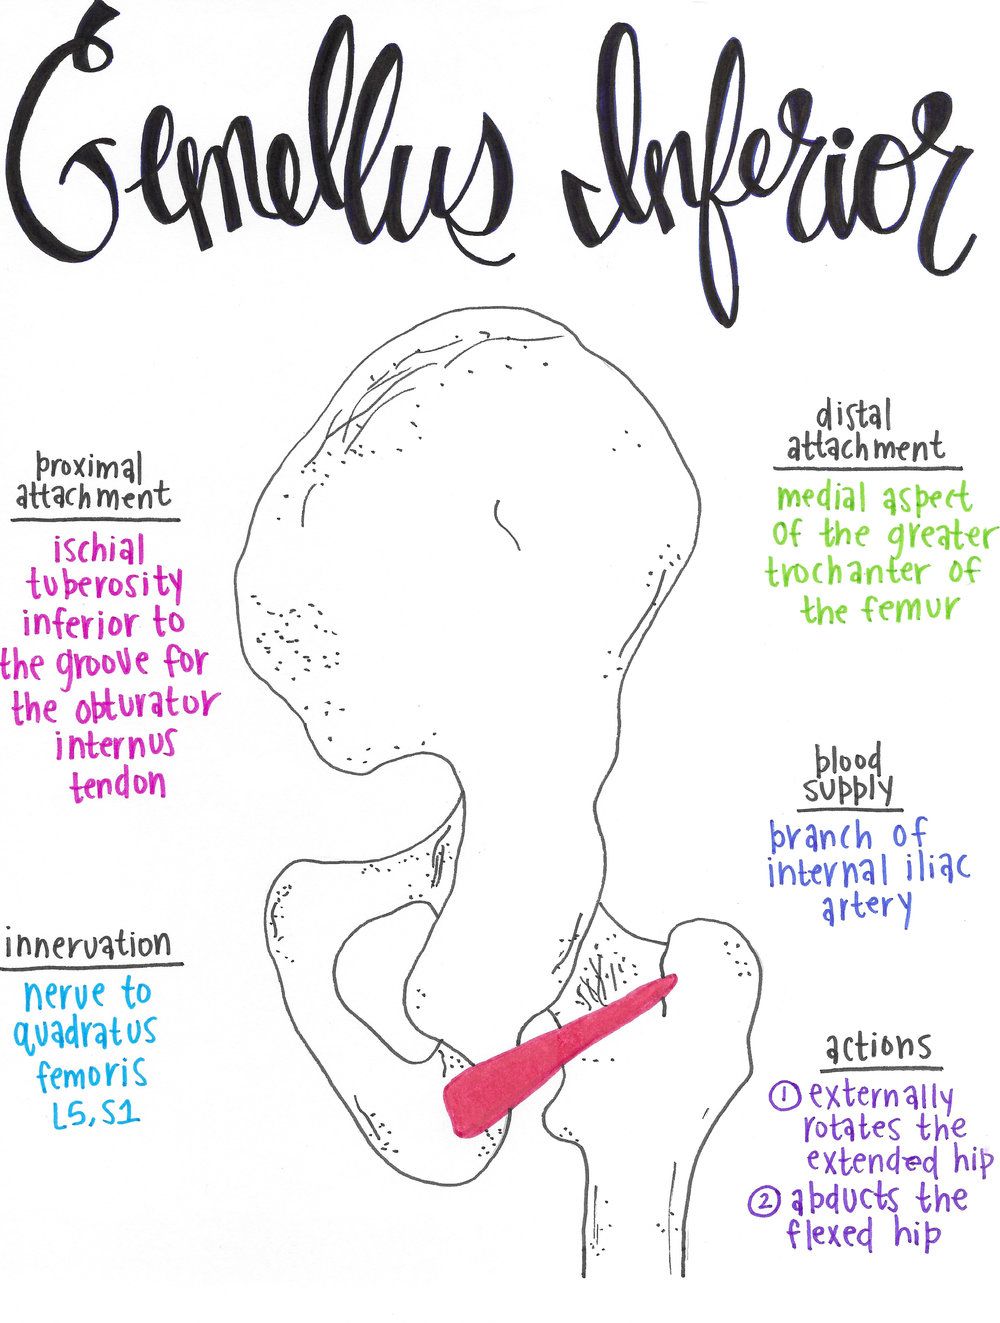 Gemellus Inferior
proximal
attachment
ischial
tuberosity
inferior to
the groove for
the obturator
internus
tendon
innervation
nerve to
quadratus
femoris
L5, S1
distal
attachment
medial aspect
of the greater
trochanter of
the femur
blood
supply
branch of
internal iliac
artery
actions
① externally
rotates the
extended hip
② abducts the
flexed hip